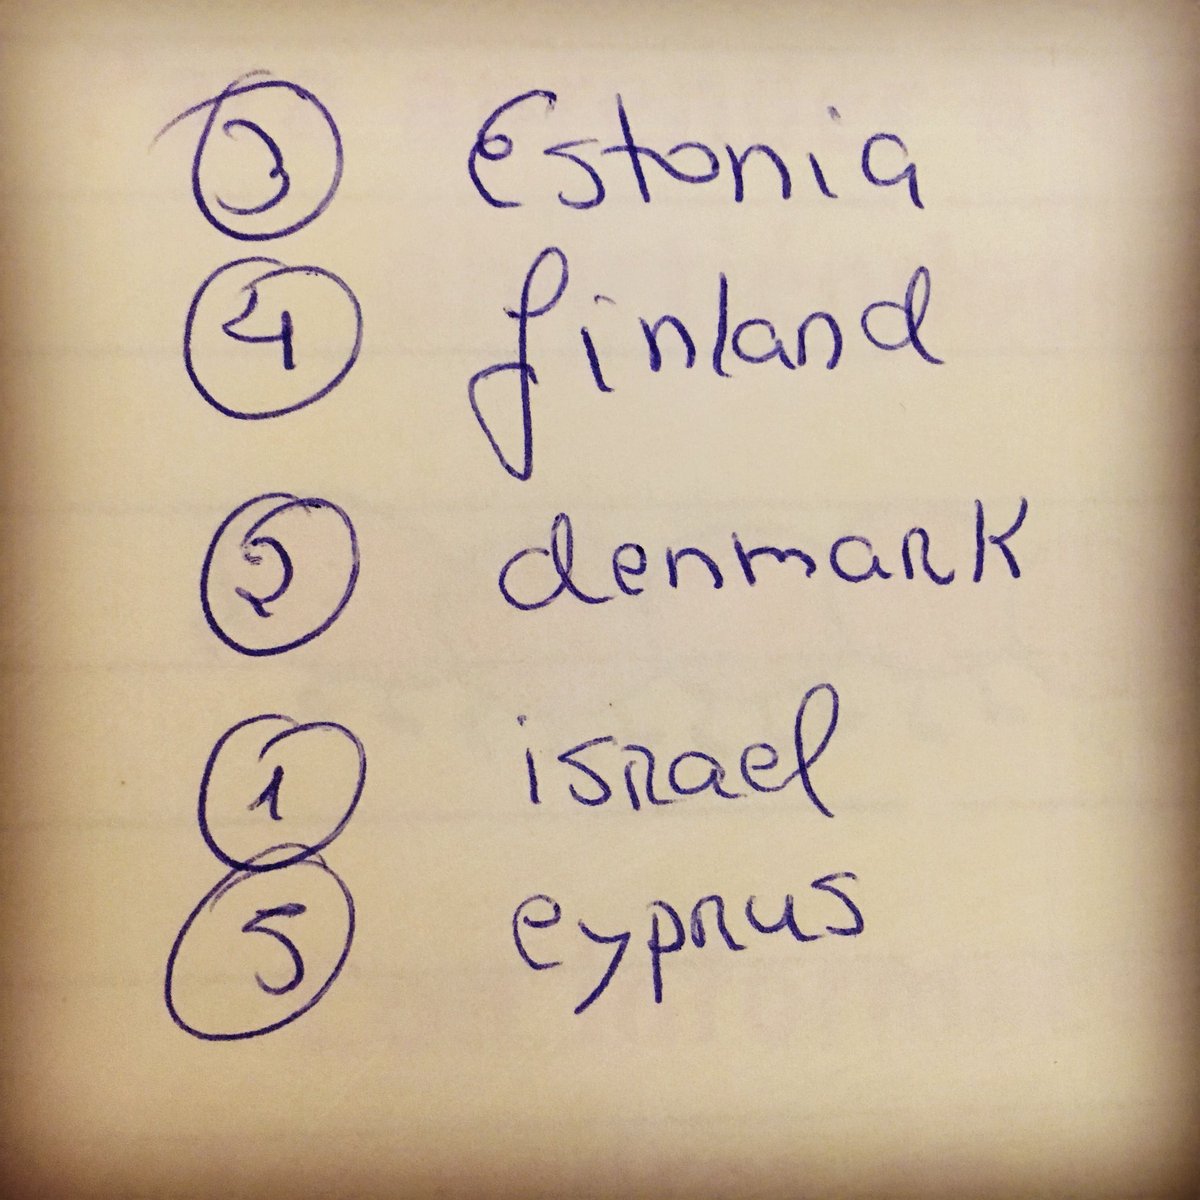 3 Estonia
4 finland
2 denmark
1 israel
5 cyprus